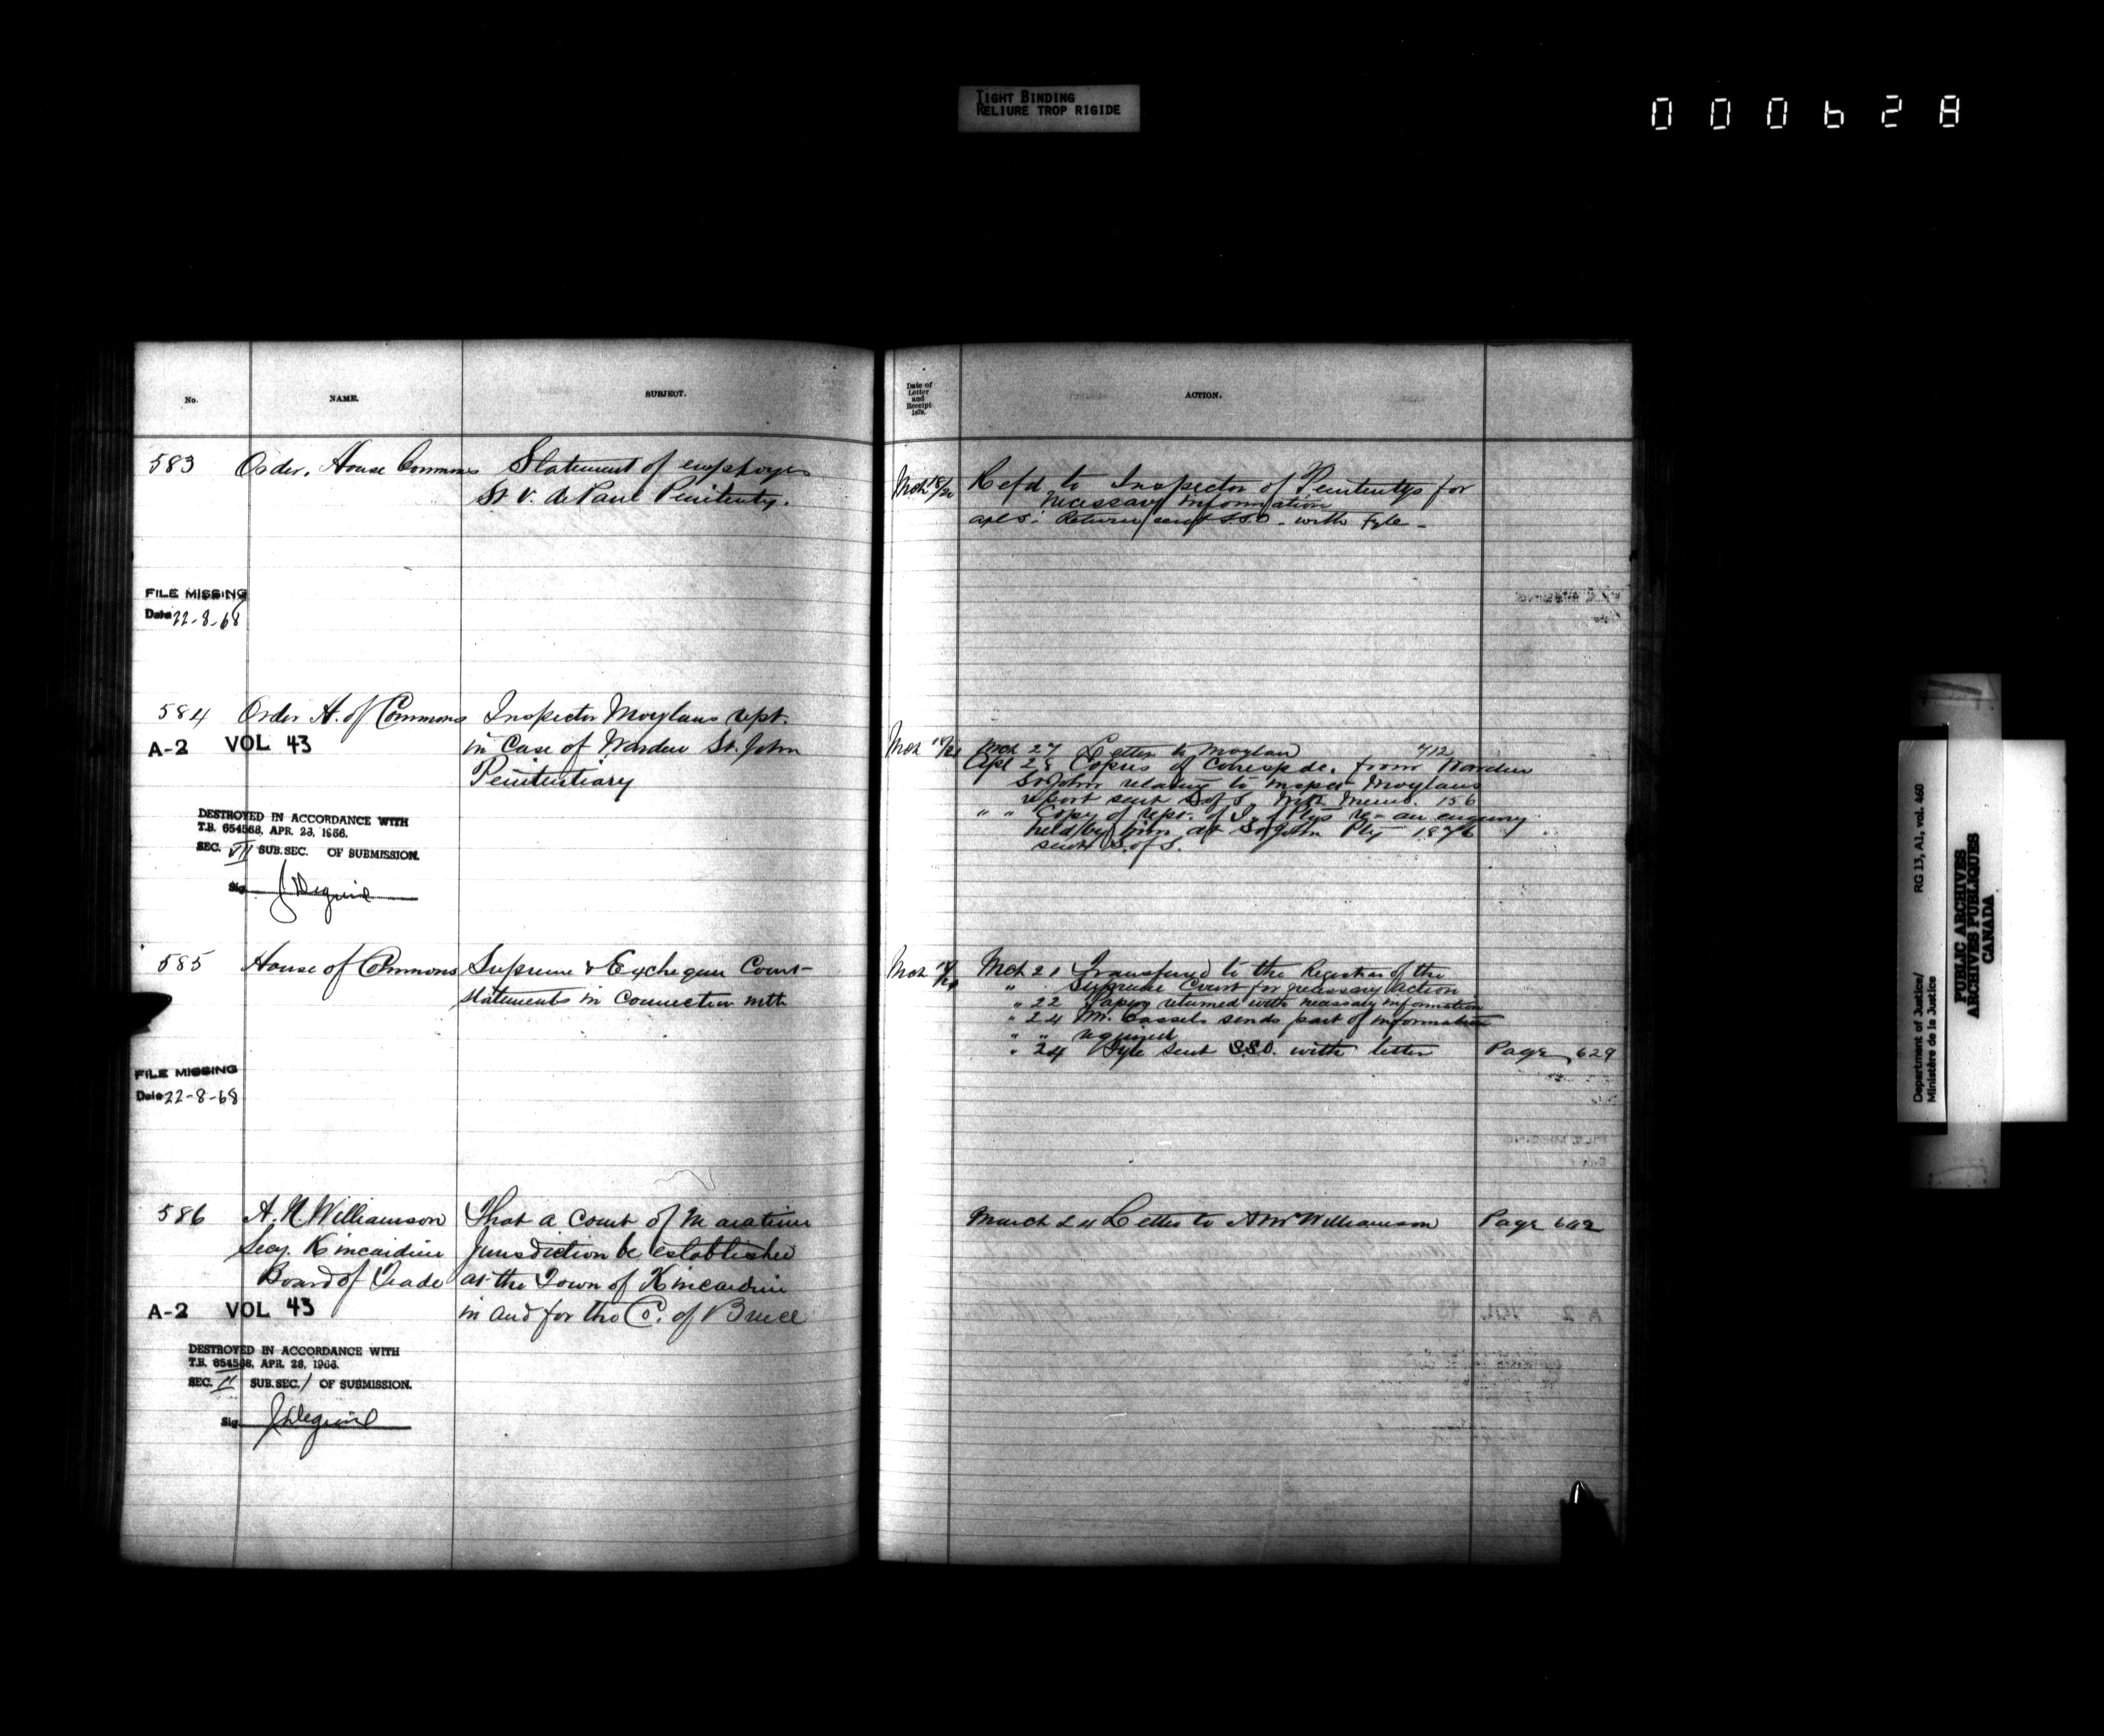 TIGHT BINDING
RELIURE TROP RIGIDE
000628
No.
NAME.
SUBJECT.
583 Order. House Commons Statement of employes
St. V. de Paul Penitenty.
FILE MISSING
Date 22-8-68
584 Order H. of Commons Inspector Moylans rept.
A-2 VOL 43 in Case of Warden St. John
Penitentiary
DESTROYED IN ACCORDANCE WITH
T.B. 654568, APR. 28, 1966.
SEC. VII SUB.SEC. OF SUBMISSION.
Sig
585 House of Commons Supreme & Exchequer Court
statements in connection with
FILE MISSING
Date 22-8-68
586 A. N. Williamson That a Court of Maratime
Secy. Kincardine Jurisdiction be established
Board of Trade at the Town of Kincardine
A-2 VOL 43 in and for the C. of Bruce
DESTROYED IN ACCORDANCE WITH
T.B. 654568, APR. 28, 1966.
SEC. II SUB.SEC. 1 OF SUBMISSION.
Sig
Date of
Letter
and
Receipt
187
ACTION.
Mch 18/20 Refd to Inspector of Penitentys for
necessary information
apl 5: Return sent S.S.O. with Fyle -
Mch Mch 27 Letter to Moylan 412
Apl 28 Copies of Correspde. from Warden
St John relating to Inspec Moylans
report sent S of S. With Memo. 156
" " Copy of rept. of I. of Ptys re- an enquiry
held by him at St John Pty 1876
sent S. of S.
Mch Mch 21 Transferred to the Registrar of the
" Supreme Court for necessary action
" 22 Papers returned with necessary information
" 24 Mr. Cassels sends part of information
" " required
" 24 Fyle sent S.S.O. with letter Page 629
March 24 Letter to A N Williamson Page 642
Department of Justice/
Ministère de la Justice
RG 13, A1, vol. 460
PUBLIC ARCHIVES
ARCHIVES PUBLIQUES
CANADA